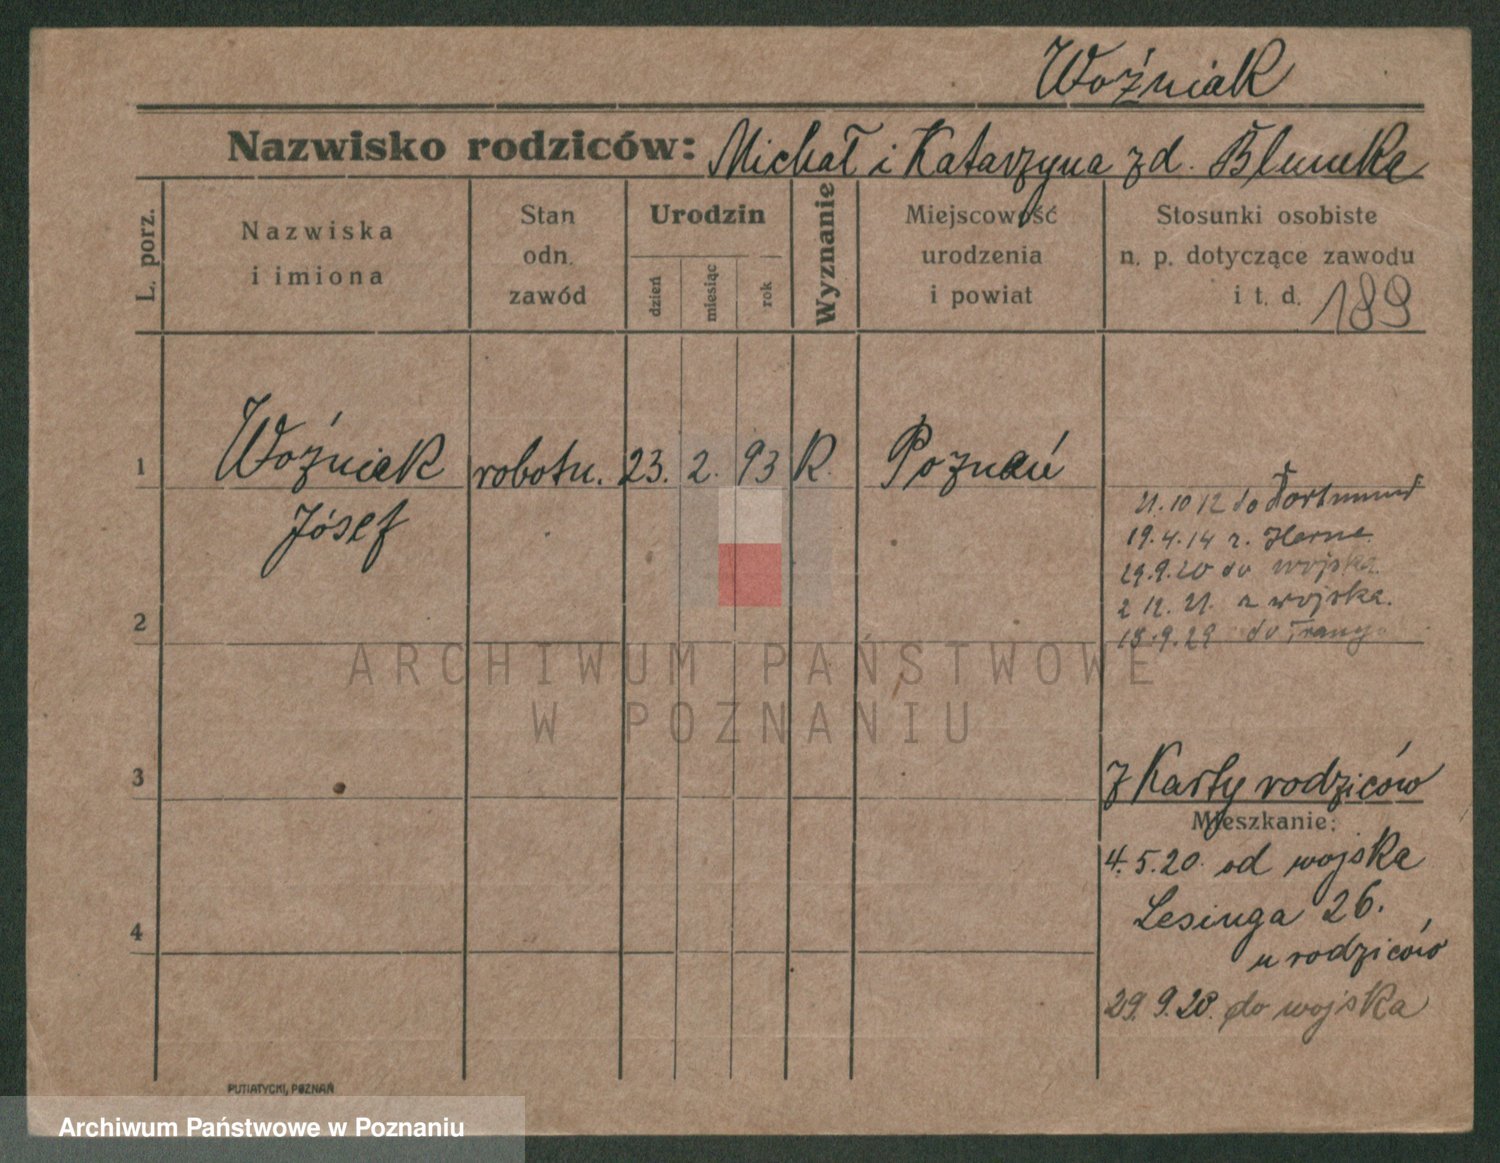 Woźniak
Nazwisko rodziców: Michał i Katarzyna zd.
L. porz.
Nazwiska
i imiona
Stan
odn.
zawód
Urodzin
dzień
miesiąc
rok
Wyznanie
Miejscowość
urodzenia
i powiat
Stosunki osobiste
n. p. dotyczące zawodu
i t. d. 189
1 Woźniak robotn. 23. 2. 93 R. Poznań
Józef
21.10 12 do Dortmund
19.4.14 z. Herne
29.9.20 do wojska
2 12. 21. z wojska.
18.9.29 do
2
3
z Karty rodziców
Mieszkanie:
4.5.20. od wojska
Lesinga 26.
u rodziców
4
29.9.20. do wojska
PUTIATYCKI, POZNAŃ
ARCHIWUM PAŃSTWOWE
W POZNANIU
Archiwum Państwowe w Poznaniu